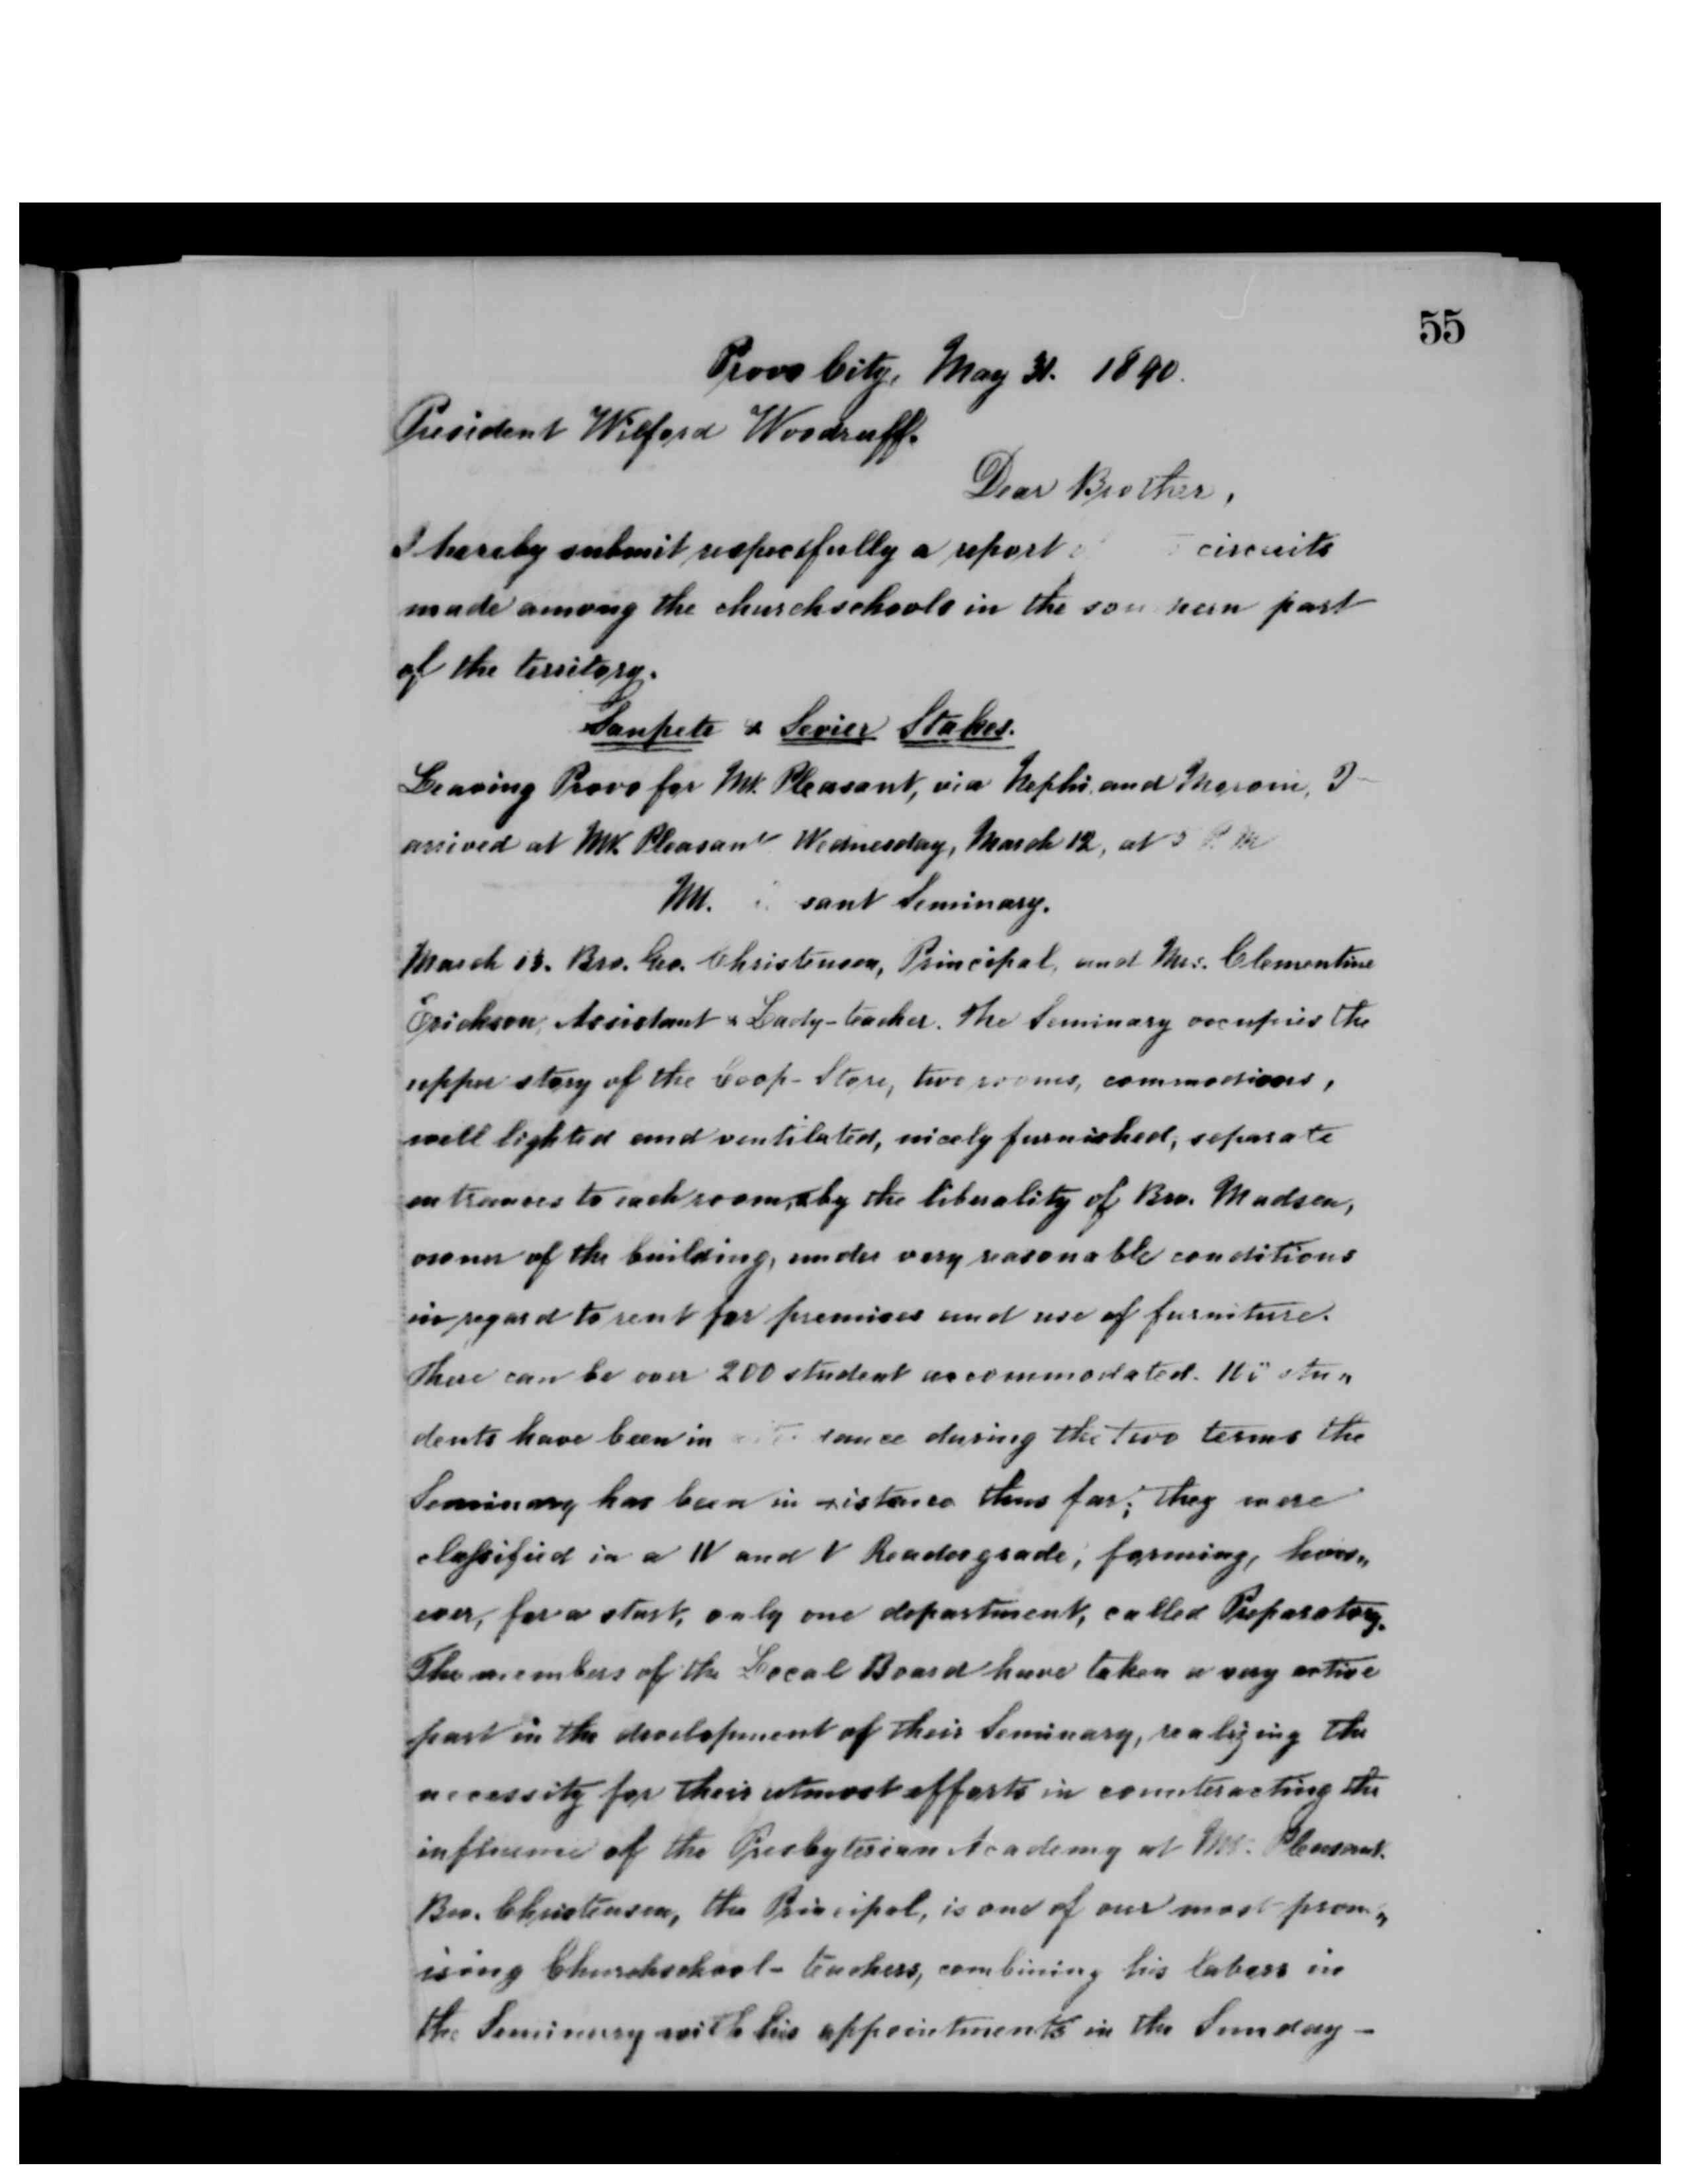 55
Provo City, May 31. 1890.
President Wilford Woodruff.
Dear Brother,
I hereby submit respecsfully a report circuits
made among the churchschools in the southern part
of the territory.
Sanpete & Sevier Stakes.
Leaving Provo for Mt. Pleasant, via Nephi and Moroni, I
arrived at Mt. Pleasant Wednesday, March 12, at 5 P. M
Mt. sant Seminary.
March 13. Bro. Geo. Christensen, Principal, and Mrs. Clementine
Erickson, Assistant & Lady-teacher. The Seminary occupies the
upper story of the Coop-Store, two rooms, commodious,
well lighted and ventilated, nicely furnished, separate
entrances to each room, & by the liberality of Bro. Madsen,
owner of the building, under very reasonable conditions
in regard to rent for premises and use of furniture.
There can be over 200 student accommodated. stu„
dents have been in during the two terms the
Seminary has been in existence thus far; they were
classified in a IV and V Readergrade, forming, how„
ever, for a start, only one department, called Preparatory.
The members of the Local Board have taken a very active
part in the development of their Seminary, realizing the
necessity for their utmost efforts in counteracting the
influence of the Presbyterian Academy at Mt. Pleasant.
Bro. Christensen, the Principal, is one of our most prom„
ising Churchschool-teachers, combining his labors in
the Seminary with his appointments in the Sunday-